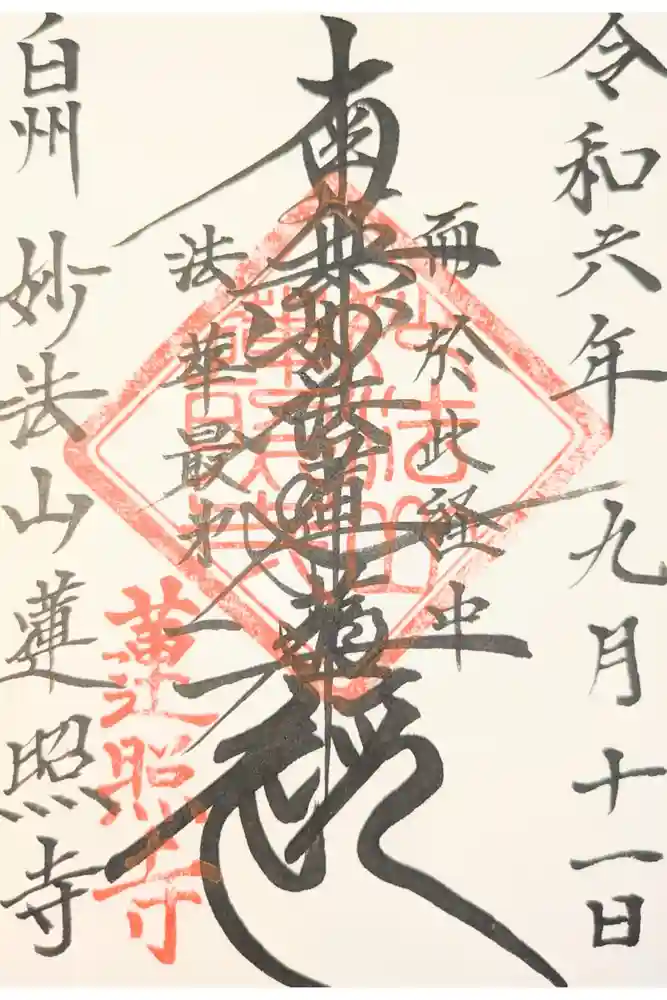 令和六年九月十一日
而於此経中
南無妙法蓮華経
法華最第一
白州 妙法山蓮照寺
蓮照寺